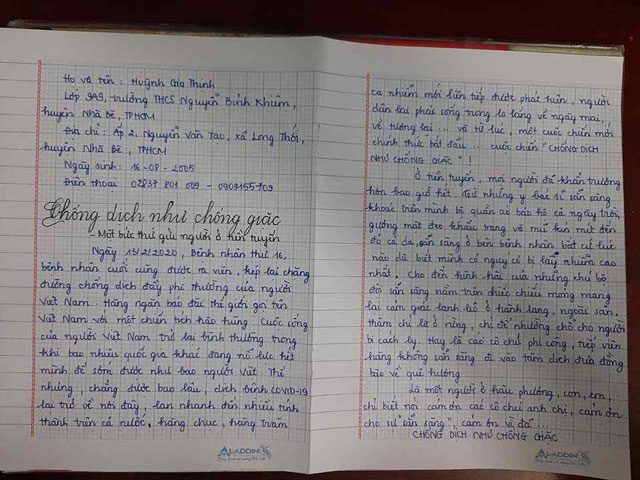 Họ và tên : Huỳnh Gia Thịnh
Lớp 9A9, trường THCS Nguyễn Bỉnh Khiêm,
huyện Nhà Bè, TPHCM
Địa chỉ : Ấp 2, Nguyễn Văn Tạo, xã Long Thới,
huyện Nhà Bè, TPHCM
Ngày sinh : 16-08-2005
Điện thoại : 02837 801 009 - 0909155709
Chống dịch như chống giặc
- Một bức thư gửi người ở tiền tuyến
Ngày 13/2/2020, Bệnh nhân thứ 16,
bệnh nhân cuối cùng được ra viện, khép lại chặng
đường chống dịch đầy phi thường của người
Việt Nam. Hàng ngàn báo đài thế giới gọi tên
Việt Nam với một chiến tích hào hùng. Cuộc sống
của người Việt Nam trở lại bình thường trong
khi bao nhiêu quốc gia khác đang nỗ lực hết
mình để sớm được như bao người Việt. Thế
nhưng, chẳng được bao lâu, dịch bệnh COVID-19
lại trở về nơi đây, lan nhanh đến nhiều tỉnh
thành trên cả nước, hàng chục, hàng trăm
ALADDIN
ca nhiễm mới liên tiếp được phát hiện, người
dân lại phải sống trong lo lắng về ngày mai,
về tương lai ... và từ lúc, một cuộc chiến mới
chính thức bắt đầu ... cuộc chiến "CHỐNG DỊCH
NHƯ CHỐNG GIẶC" !
Ở tiền tuyến, mọi người đã khẩn trương
hơn bao giờ hết. Từ những y bác sĩ sẵn sàng
khoác trên mình bộ quần áo bảo hộ cả ngày trời,
gương mặt đeo khẩu trang và mũ kín mít đến
đỏ cả da, sẵn sàng ở bên bệnh nhân bất cứ lúc
nào dù biết mình có nguy cơ bị lây nhiễm cao
nhất. Cho đến hình hài của những chú bộ
đội sẵn sàng nằm trên chiếc chiếu mỏng mang
lại cảm giác lạnh lẽo ở hành lang, ngoài sân,
thậm chí là ở rừng, chỉ để nhường chỗ cho người
bị cách ly. Hay là các cô chú phi công, tiếp viên
hàng không sẵn sàng đi vào tâm dịch đưa đồng
bào về quê hương.
Là một người ở hậu phương, con, em,
chỉ biết nói cảm ơn các cô chú anh chị, cảm ơn
cho sự "sẵn sàng", cảm ơn vì đã
CHỐNG DỊCH NHƯ CHỐNG GIẶC
ALADDIN